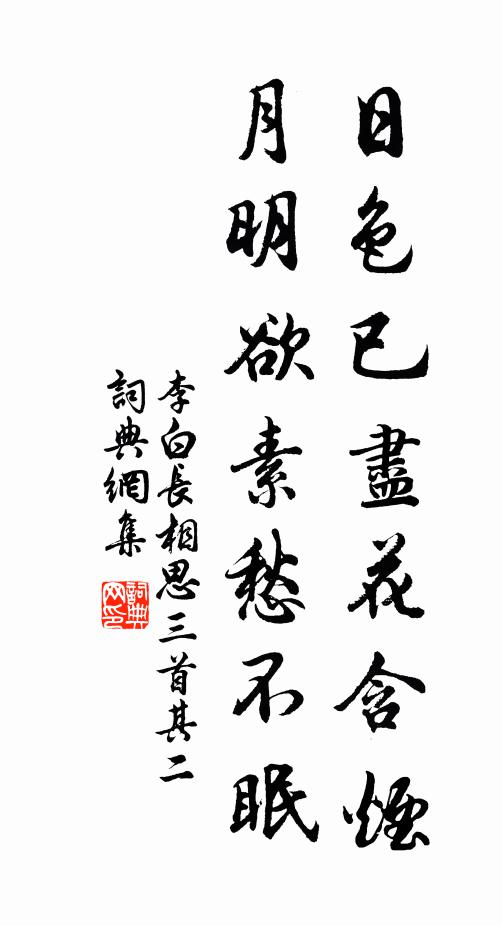 日色已盡花含煙
月明欲素愁不眠
李白長相思三首其二
詞典網集
詞典
网印